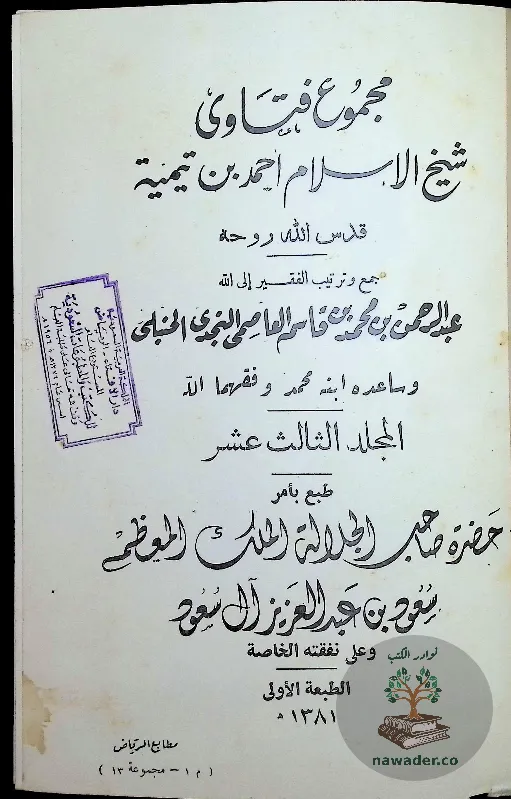 مجموع فتاوى
شيخ الإسلام أحمد بن تيمية
قدس الله روحه
جمع وترتيب الفقير إلى الله
عبد الرحمن بن محمد بن قاسم العاصمي النجدي الحنبلي
وساعده ابنه محمد وفقهما الله
المجلد الثالث عشر
طبع بأمر
حضرة صاحب الجلالة الملك المعظم
سعود بن عبد العزيز آل سعود
وعلى نفقته الخاصة
الطبعة الأولى
١٣٨١ هـ
مطابع الرياض
( م ١ – مجموعة ١٣ )
نوادر الكتب
nawader.co